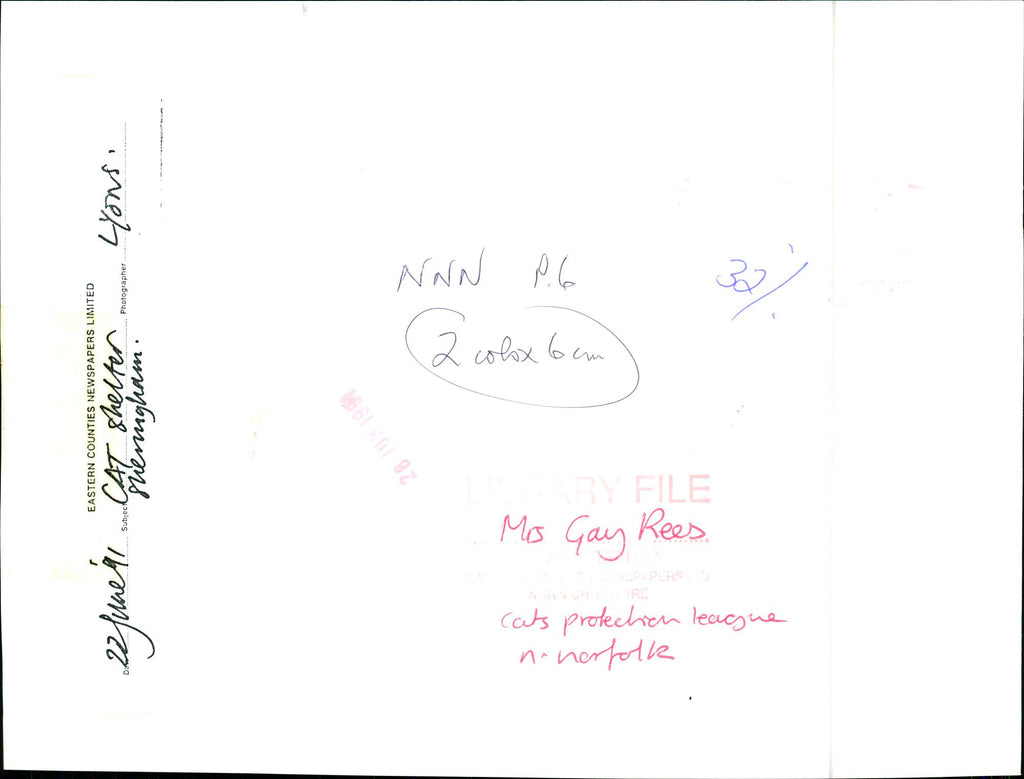 EASTERN COUNTIES NEWSPAPERS LIMITED
Date 22 June '91 Subject CAT Shelter Photographer Lyons.
Sheringham.
NNN P.6
2 cols x 6 cm
32%
28 JUN 1991
LIBRARY FILE
Mrs Gay Rees
NEWSPAPERS LTD
cats protection league
n. norfolk